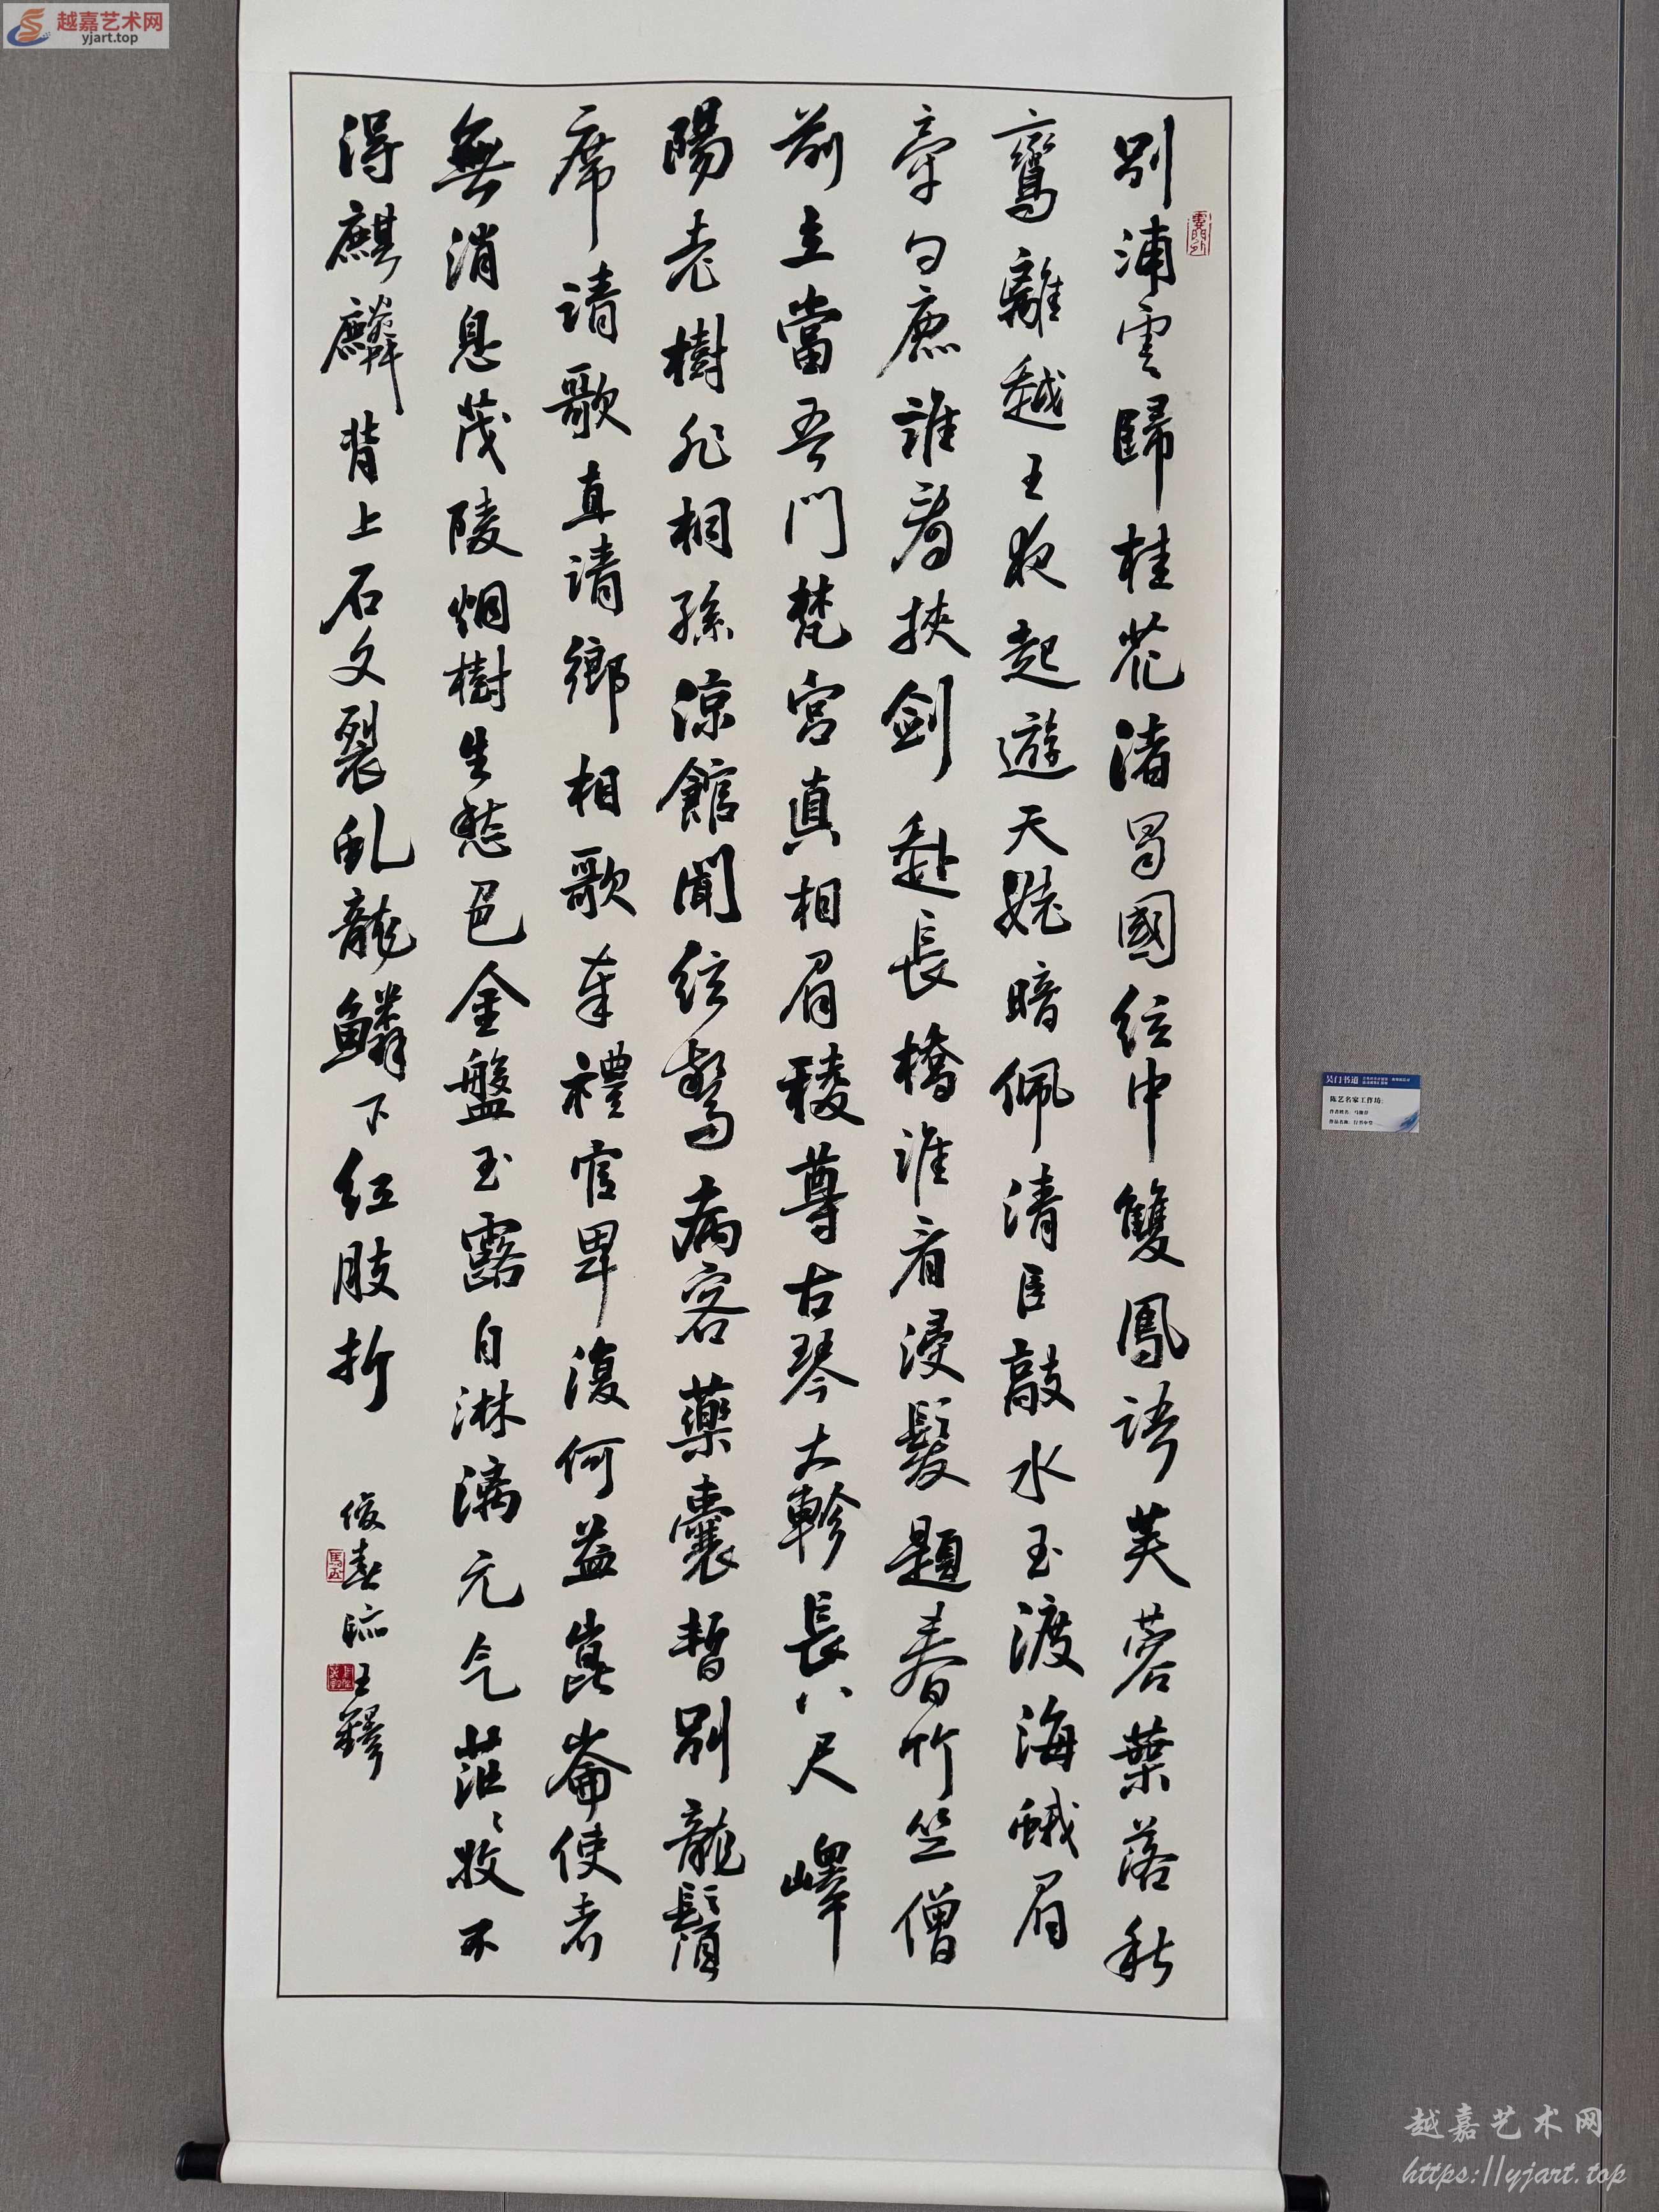 越嘉艺术网
yjart.top
別浦雲歸桂花渚蜀國弦中雙鳳語芙蓉葉落秋
鸞離越王夜起遊天姥暗佩清臣敲水玉渡海蛾眉
牽白鹿誰看挾劍赴長橋誰看浸髮題春竹竺僧
前立當吾門梵宮真相眉稜尊古琴大軫長八尺嶧
陽老樹非桐孫涼館聞弦驚病客藥囊暫別龍鬚
席請歌直請鄉相歌奉禮官卑復何益崑崙使者
無消息茂陵烟樹生愁色金盤玉露自淋漓元气茫〻牧不
得麒麟背上石文裂虬龍鱗下红肢折
俊春临王鐸
吴门书道
陈艺名家工作坊:
越嘉艺术网
https://yjart.top